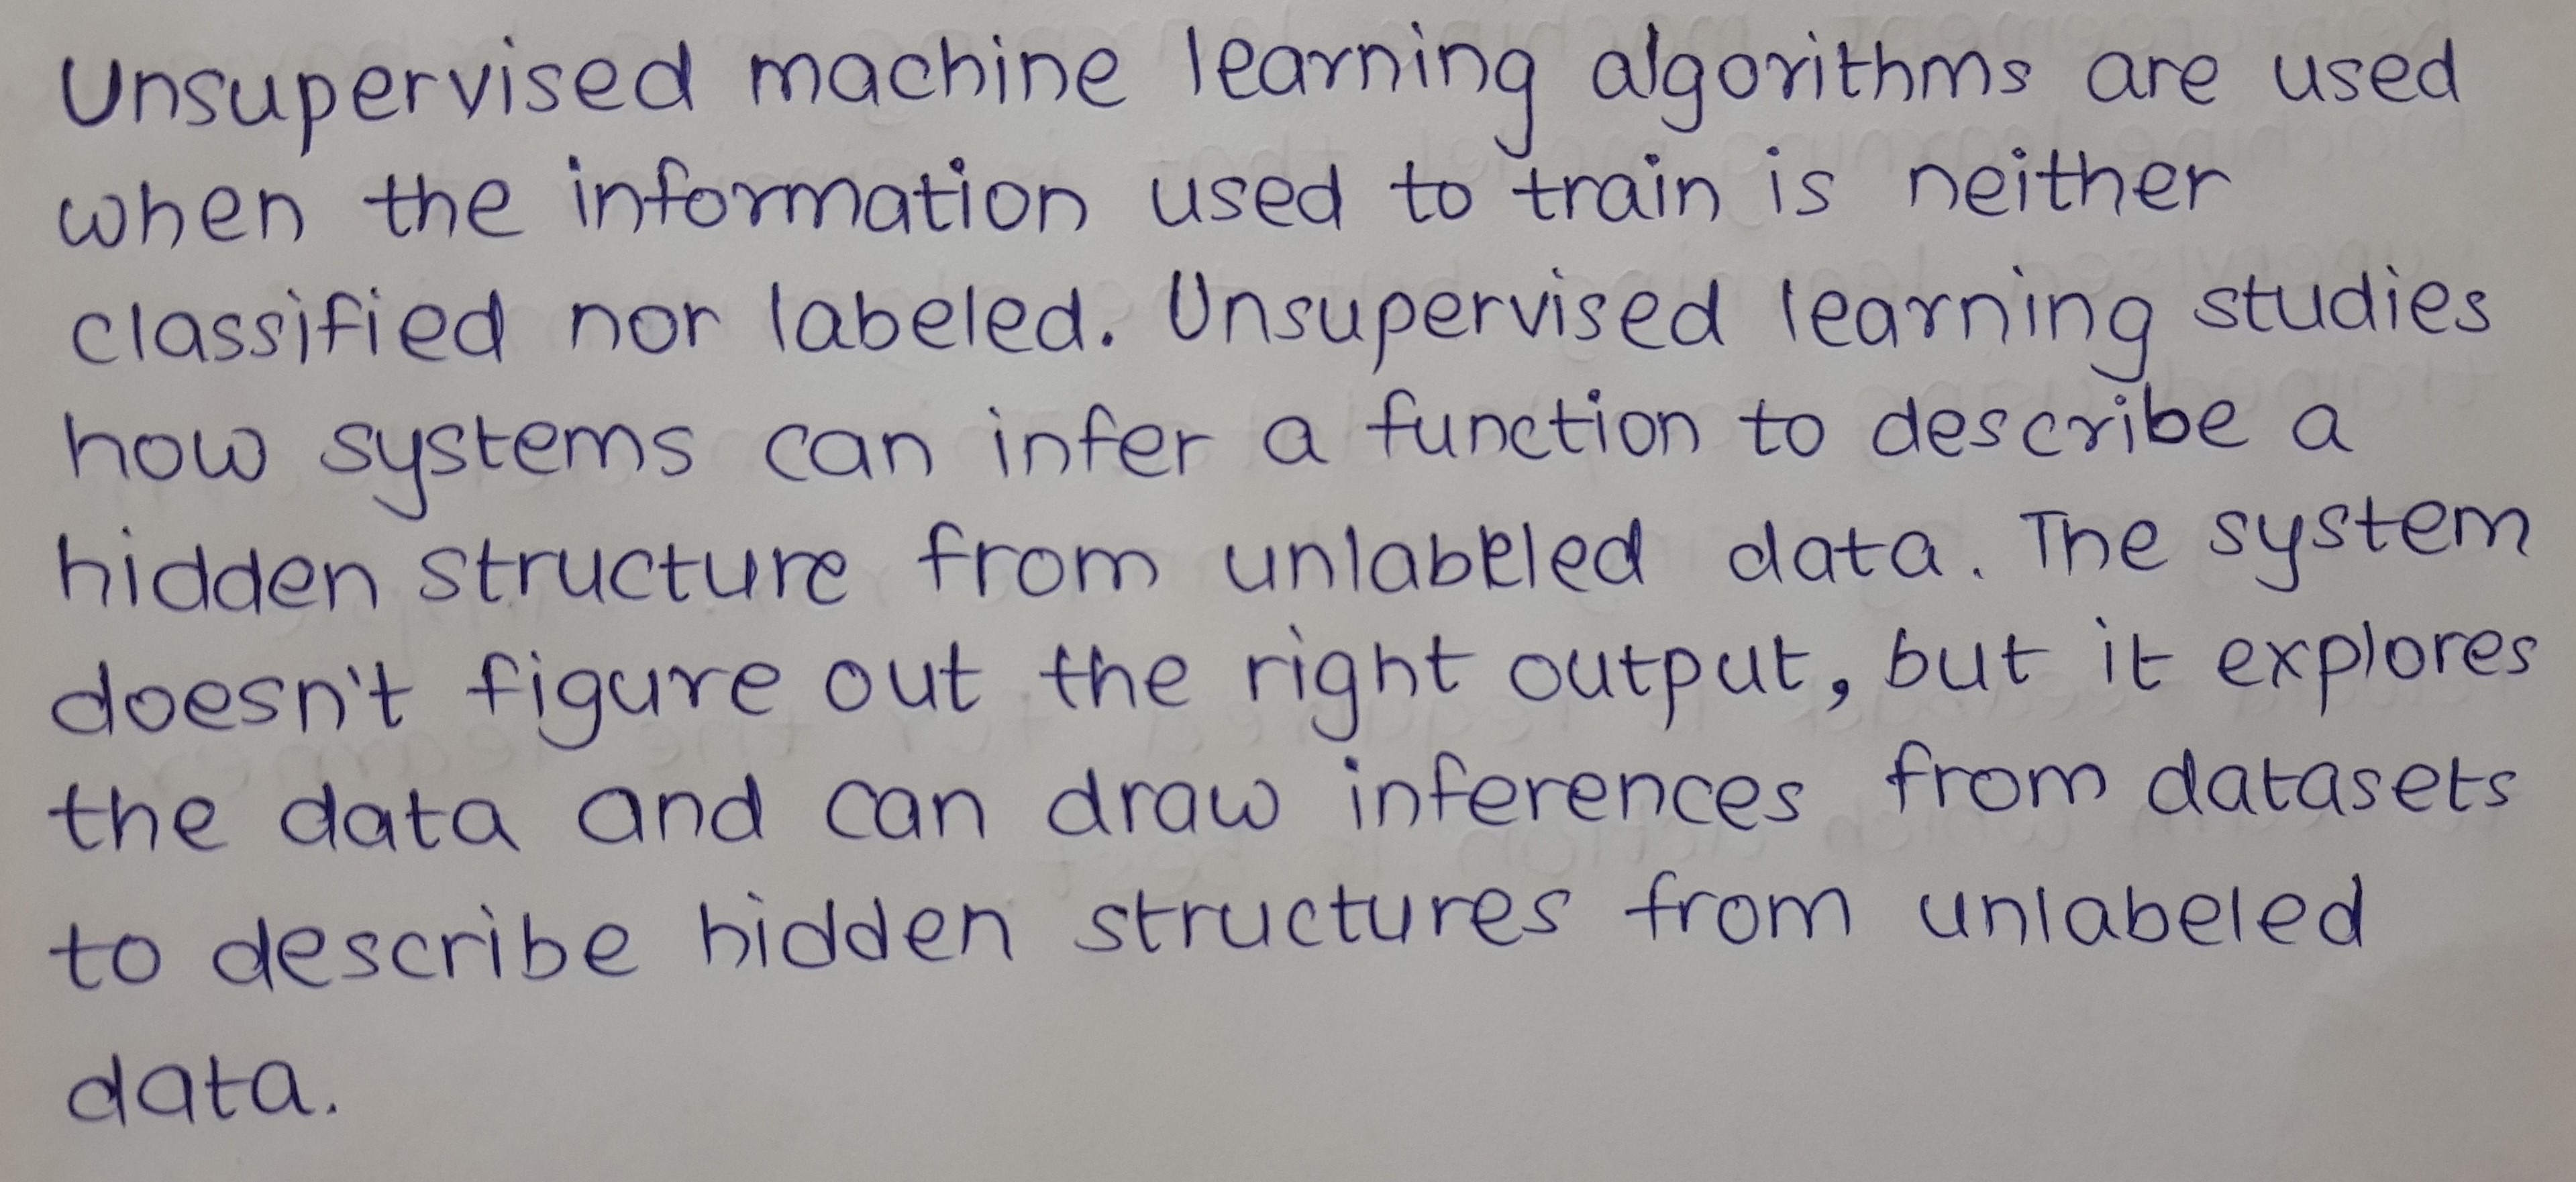 Unsupervised machine learning algorithms are used
when the information used to train is neither
classified nor labeled. Unsupervised learning studies
how systems can infer a function to describe a
hidden structure from unlabeled data. The system
doesn't figure out the right output, but it explores
the data and can draw inferences from datasets
to describe hidden structures from unlabeled
data.